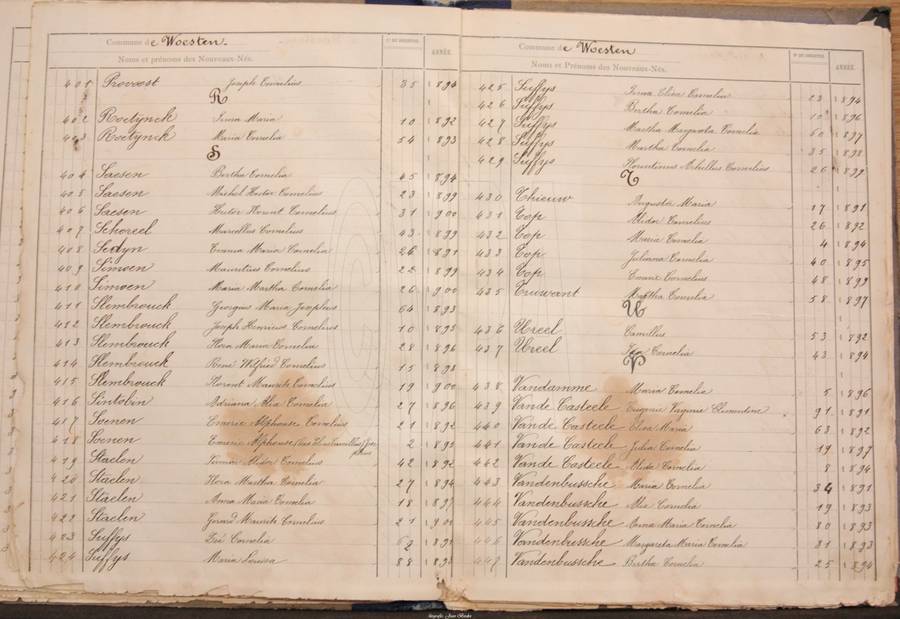 Commune de Woesten
Noms et prénoms des Nouveaux-Nés.
ANNÉE
401 Provoost Joseph Cornelius 35 1894
R
402 Roetynck Irma Maria 10 1892
403 Roetynck Maria Cornelia 54 1893
S
404 Saesen Bertha Cornelia 45 1894
405 Saesen Michel Hector Cornelius 23 1899
406 Saesen Hector Florent Cornelius 31 1900
407 Schoreel Marcellus Cornelius 43 1899
408 Sedyn Maria Cornelia 26 1891
409 Simoen Mauritius Cornelius 22 1899
410 Simoen Maria Martha Cornelia 26 1900
411 Slembrouck Georgius Maria Josephus 64 1893
412 Slembrouck Joseph Henricus Cornelius 10 1895
413 Slembrouck Flora Maria Cornelia 28 1896
414 Slembrouck René Wilfried Cornelius 15 1898
415 Slembrouck Florent Maurits Cornelius 19 1900
416 Sintobin Adriana Alia Cornelia 27 1896
417 Soenen Emerie Alphonse Cornelius 21 1892
418 Soenen Emerie Alphonse 2 1895
419 Staelen Alidor Cornelius 42 1892
420 Staelen Flora Martha Cornelia 27 1894
421 Staelen Anna Maria Cornelia 18 1897
422 Staelen Gerard Maurits Cornelius 21 1900
423 Suffys Cornelia
424 Suffys Maria Louisa 88 1893
Commune de Woesten
Noms et Prénoms des Nouveaux-Nés.
ANNÉE
425 Suffys Irma Elisa Cornelia 23 1894
426 Suffys Bertha Cornelia 10 1896
427 Suffys Martha Margareta Cornelia 60 1897
428 Suffys Martha Cornelia 35 1898
429 Suffys Florentinus Achilles Cornelius 26 1899
T
430 Thieuw Augusta Maria 17 1891
431 Top Alidor Cornelius 26 1892
432 Top Maria Cornelia 4 1894
433 Top Juliana Cornelia 40 1895
434 Top Cornelius 48 1899
435 Truwant Martha Cornelia 58 1897
U
436 Ureel Camillus 53 1892
437 Ureel Cornelia 43 1894
V
438 Vandamme Maria Cornelia 5 1896
439 Vande Casteele Eugenie Clementina 91 1891
440 Vande Casteele Elisa Maria 63 1892
441 Vande Casteele Julia Cornelia 19 1897
442 Vande Casteele Alida Cornelia 8 1894
443 Vandenbussche Maria Cornelia 34 1891
444 Vandenbussche Alia Cornelia 19 1893
445 Vandenbussche Anna Maria Cornelia 80 1893
446 Vandenbussche Margareta Maria Cornelia 31 1893
447 Vandenbussche Bertha Cornelia 25 1894